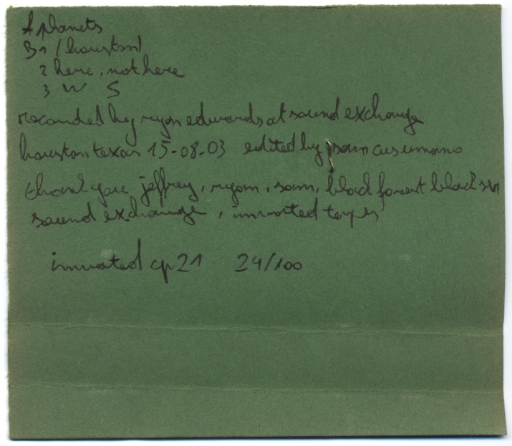 A planets
B1 (houston)
2 here, not here
3 W S
recorded by ryan edwards at sound exchange
houston texas 15-08-03 edited by sam cusumano
thank you jeffrey, ryan, sam, black forest black sea
sound exchange, imvated tapes
imvated cp21 24/100